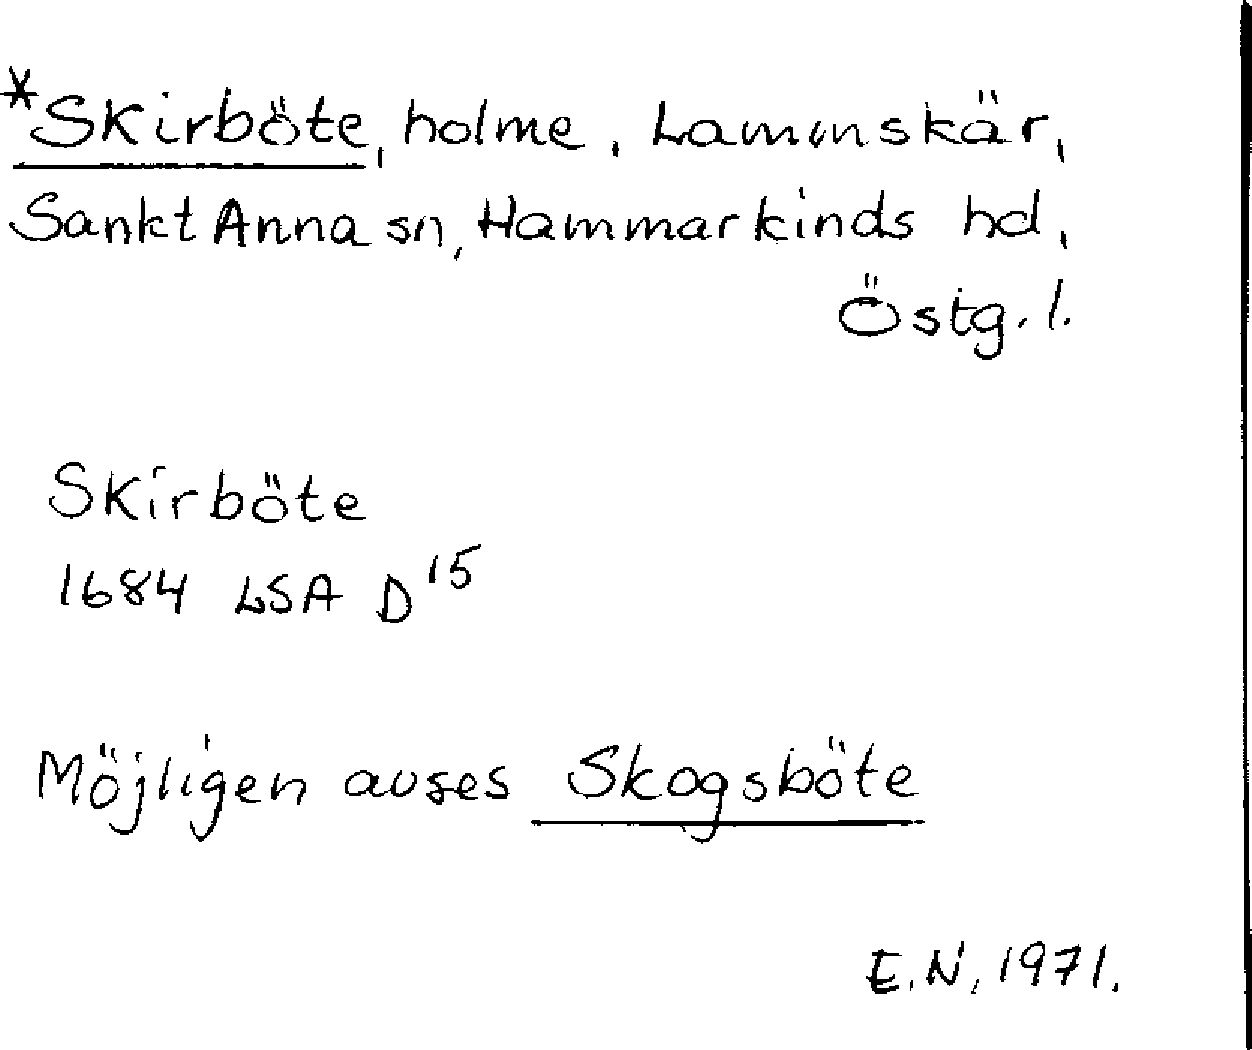 *Skirböte, holme, Lammskär,
Sankt Anna sn, Hammarkinds hd,
Östg.l.
Skirböte
1684 LSA D15
Möjligen avses Skogsböte
E.N. 1971.